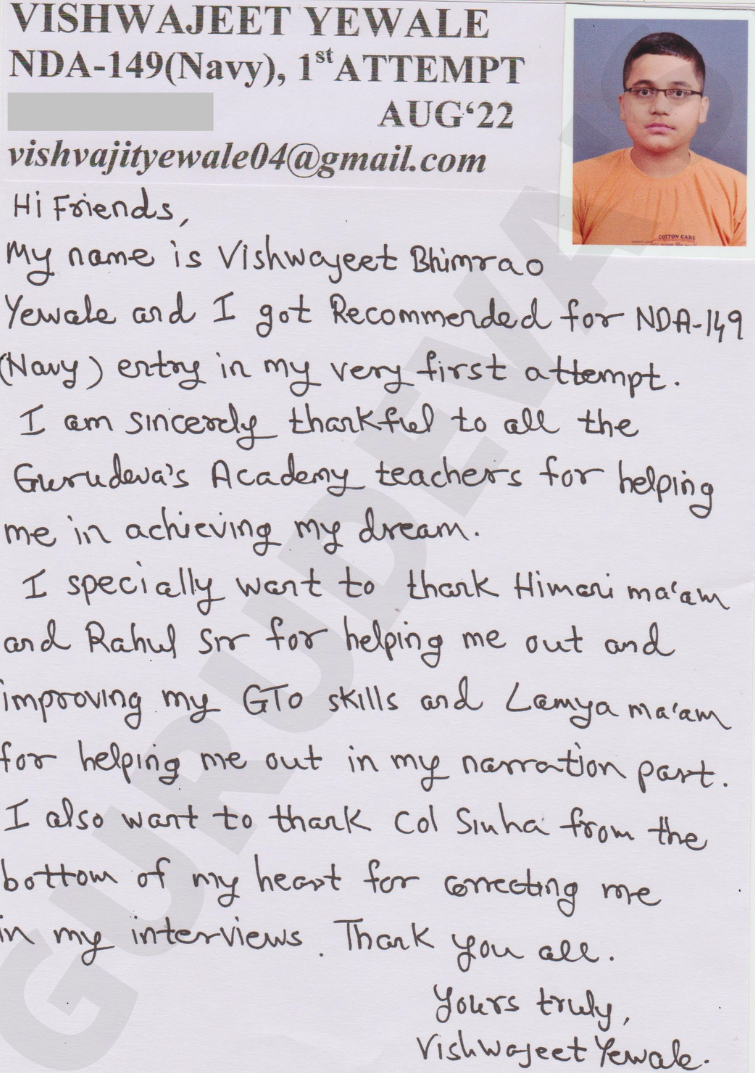 VISHWAJEET YEWALE
NDA-149(Navy), 1st ATTEMPT
AUG‘22
vishvajityewale04@gmail.com
COTTON CARE
Hi Friends,
My name is Vishwajeet Bhimrao
Yewale and I got Recommended for NDA-149
(Navy) entry in my very first attempt.
I am sincerely thankful to all the
Gurudeva's Academy teachers for helping
me in achieving my dream.
I specially want to thank Himani ma'am
and Rahul Sir for helping me out and
improving my GTO skills and Lamya ma'am
for helping me out in my narration part.
I also want to thank Col Sinha from the
bottom of my heart for correcting me
in my interviews. Thank you all.
Yours truly,
Vishwajeet Yewale.
GURUDEVAS